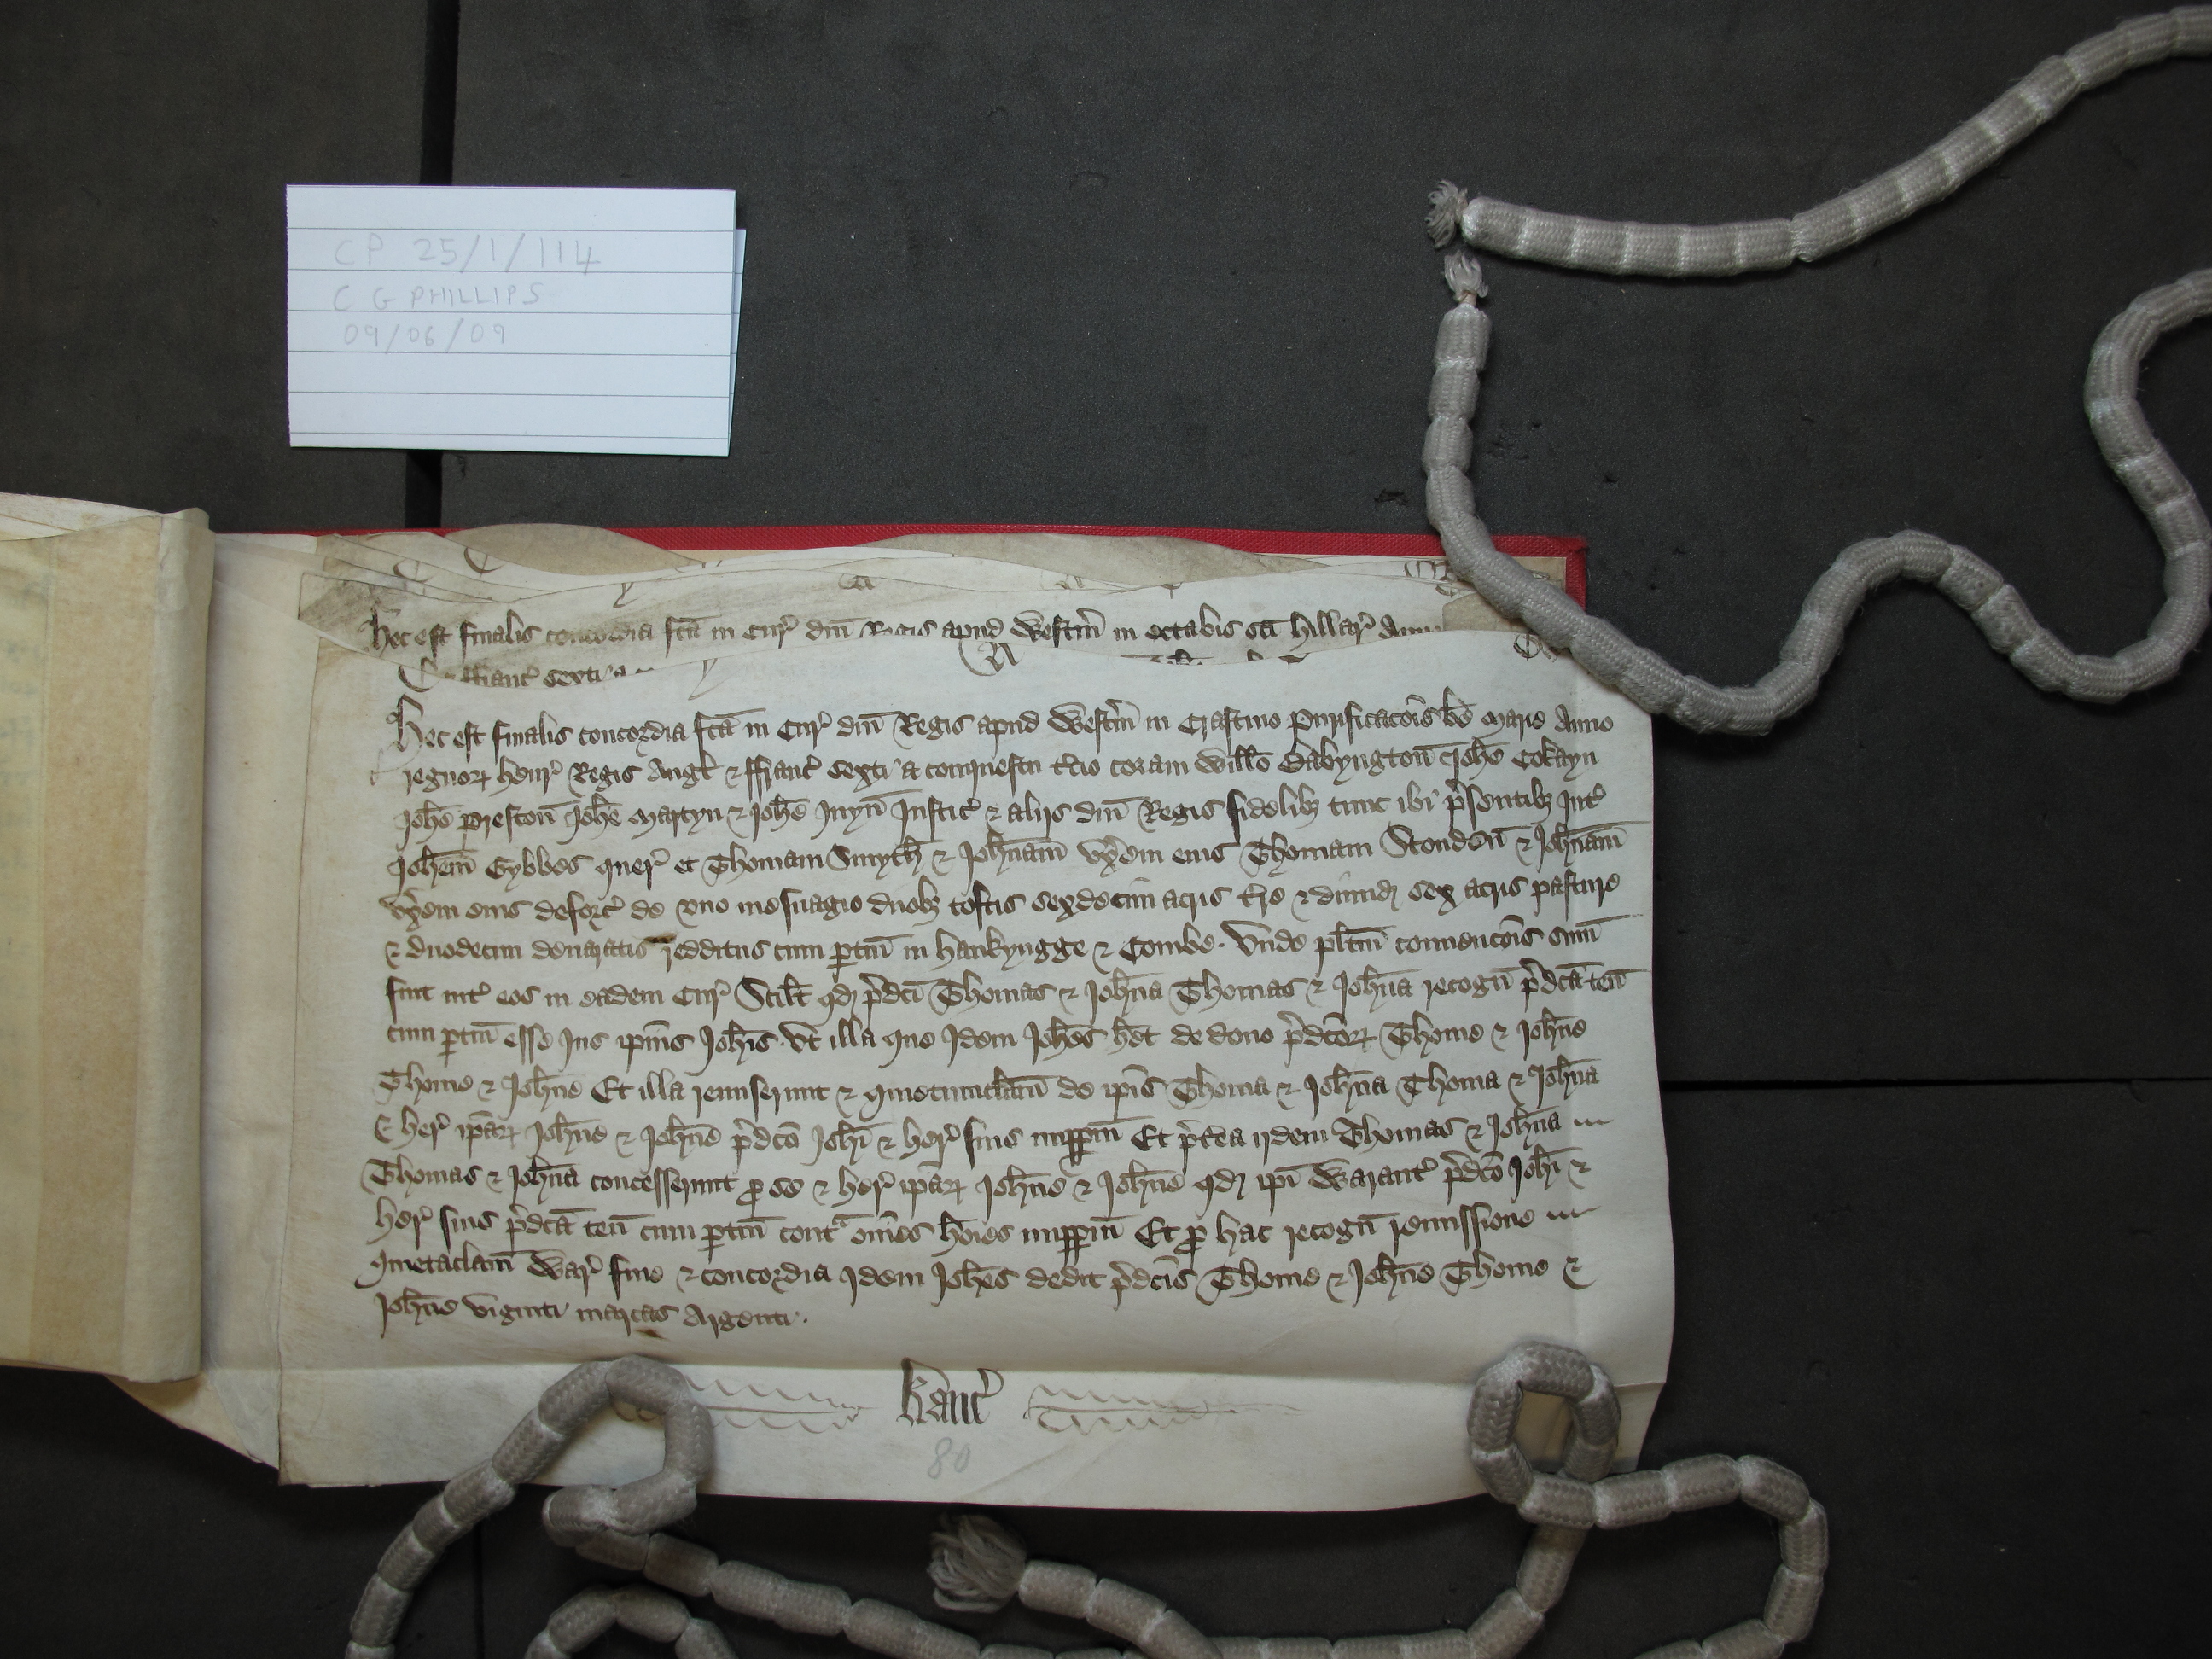 CP 25/1/114
C G PHILLIPS
09/06/09
Hec est finalis concordia fcā in Cur' dnī Regis apud Westm̄ in octabis scī Hillar' Anno
ffranc' sexti a
Hec est finalis concordia fcā in Cur' dnī Regis apud Westm̄ in Crastino Purificacōis bē Marie Anno
regnoꝝ Henr' Regis Angł & ffranc' sexti a conquestu tcio coram Willō Babyngton̄ Joħe Cokayn
Joħe Preston̄ Joħe Martyn & Joħe Juyn̄ Justic' & alijs dnī Regis fidelibȝ tunc ibi p̄sentibȝ Int'
Joħem Gybbes quer' et Thomam Smyth & Joħnam ux̄em eius Thomam Stonden̄ & Joħnam
ux̄em eius deforc' de uno mesuagio duobȝ toftis sexdecim acris tr̄e & dimid sex acris pasture
& duodecim denaratis redditus cum ꝑtin̄ in Hankyngge & Combe. Unde pltm̄ convencōis sum̄
fuit int' eos in eadem Cur' Scilt qd p̄dcī Thomas & Joħna Thomas & Joħna recogn̄ p̄dcā ten̄
cum ꝑtin̄ esse Jus ipīus Joħis. Ut illa que Idem Joħes het de dono p̄dcōꝝ Thome & Joħne
Thome & Joħne Et illa remiserunt & quietumclam̄ de ipīs Thoma & Joħna Thoma & Joħna
& her' ipāꝝ Joħne & Joħne p̄dcō Joħi & her' suis imꝑpm̄ Et p̄tea ijdem Thomas & Joħna
Thomas & Joħna concesserunt ꝓ se & her' ipāꝝ Joħne & Joħne qd ipī Warant' p̄dcō Joħi &
her' suis p̄dcā ten̄ cum ꝑtin̄ contᵃ om̄es hōies imꝑpm̄ Et ꝓ hac recogn̄ remissione
quietaclam̄ War' fine & concordia Idem Joħes dedit p̄dcīs Thome & Joħne Thome &
Joħne viginti marcas Argenti.
Kanc'
80